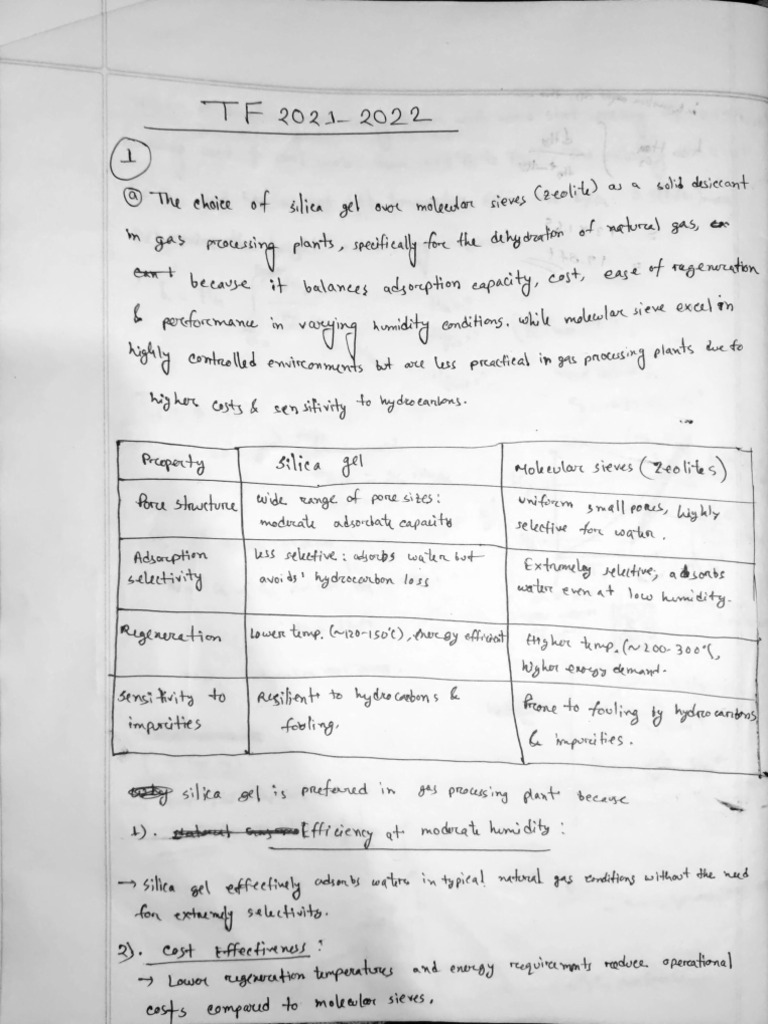 TF 2021-2022
1
a) The choice of silica gel over molecular sieves (zeolite) as a solid desiccant
in gas processing plants, specifically for the dehydration of natural gas,
because it balances adsorption capacity, cost, ease of regeneration
& performance in varying humidity conditions. While molecular sieve excel in
highly controlled environments but are less practical in gas processing plants due to
higher costs & sensitivity to hydrocarbons.
Property | Silica gel | Molecular sieves (Zeolites)
Pore structure | wide range of pore sizes: moderate adsorbate capacity | uniform small pores, highly selective for water.
Adsorption selectivity | less selective: adsorbs water but avoids hydrocarbon loss | Extremely selective; adsorbs water even at low humidity.
Regeneration | Lower temp. (~120-150°C), energy efficient | Higher temp. (~200-300°C, higher energy demand.
Sensitivity to impurities | Resilient to hydrocarbons & fouling. | Prone to fouling by hydrocarbons & impurities.
silica gel is preferred in gas processing plant because
1). Efficiency at moderate humidity:
→ Silica gel effectively adsorbs waters in typical natural gas conditions without the need
for extremely selectivity.
2). Cost Effectiveness:
→ Lower regeneration temperatures and energy requirements reduce operational
costs compared to molecular sieves.